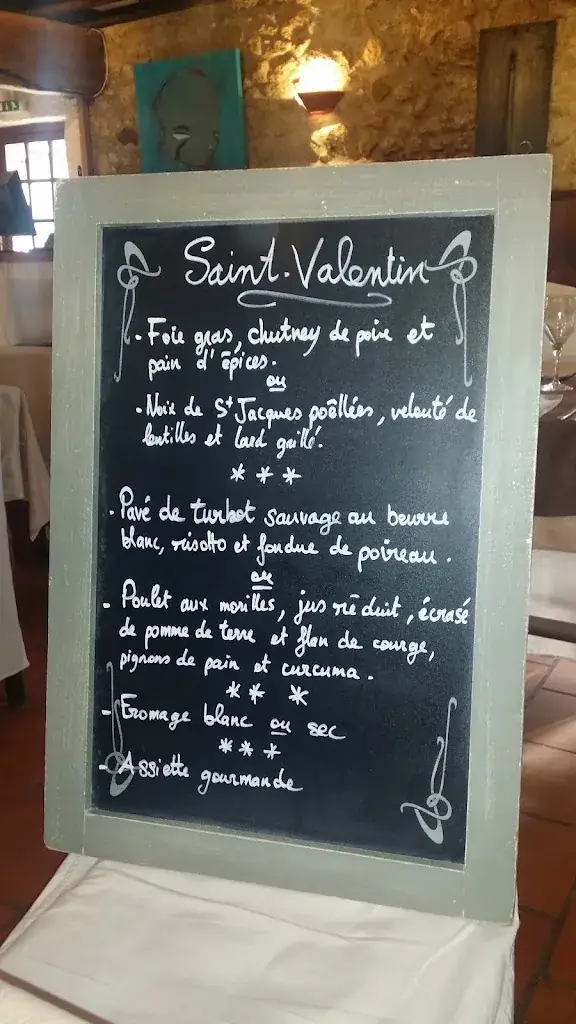 Saint-Valentin
- Foie gras, chutney de poire et
pain d'épices.
ou
- Noix de St Jacques poêllées, velouté de
lentilles et lard grillé.
* * *
- Pavé de turbot sauvage au beurre
blanc, risotto et fondue de poireau.
ou
- Poulet aux morilles, jus réduit, écrasé
de pomme de terre et flan de courge,
pignons de pain et curcuma.
* * *
- Fromage blanc ou sec
* * *
- Assiette gourmande